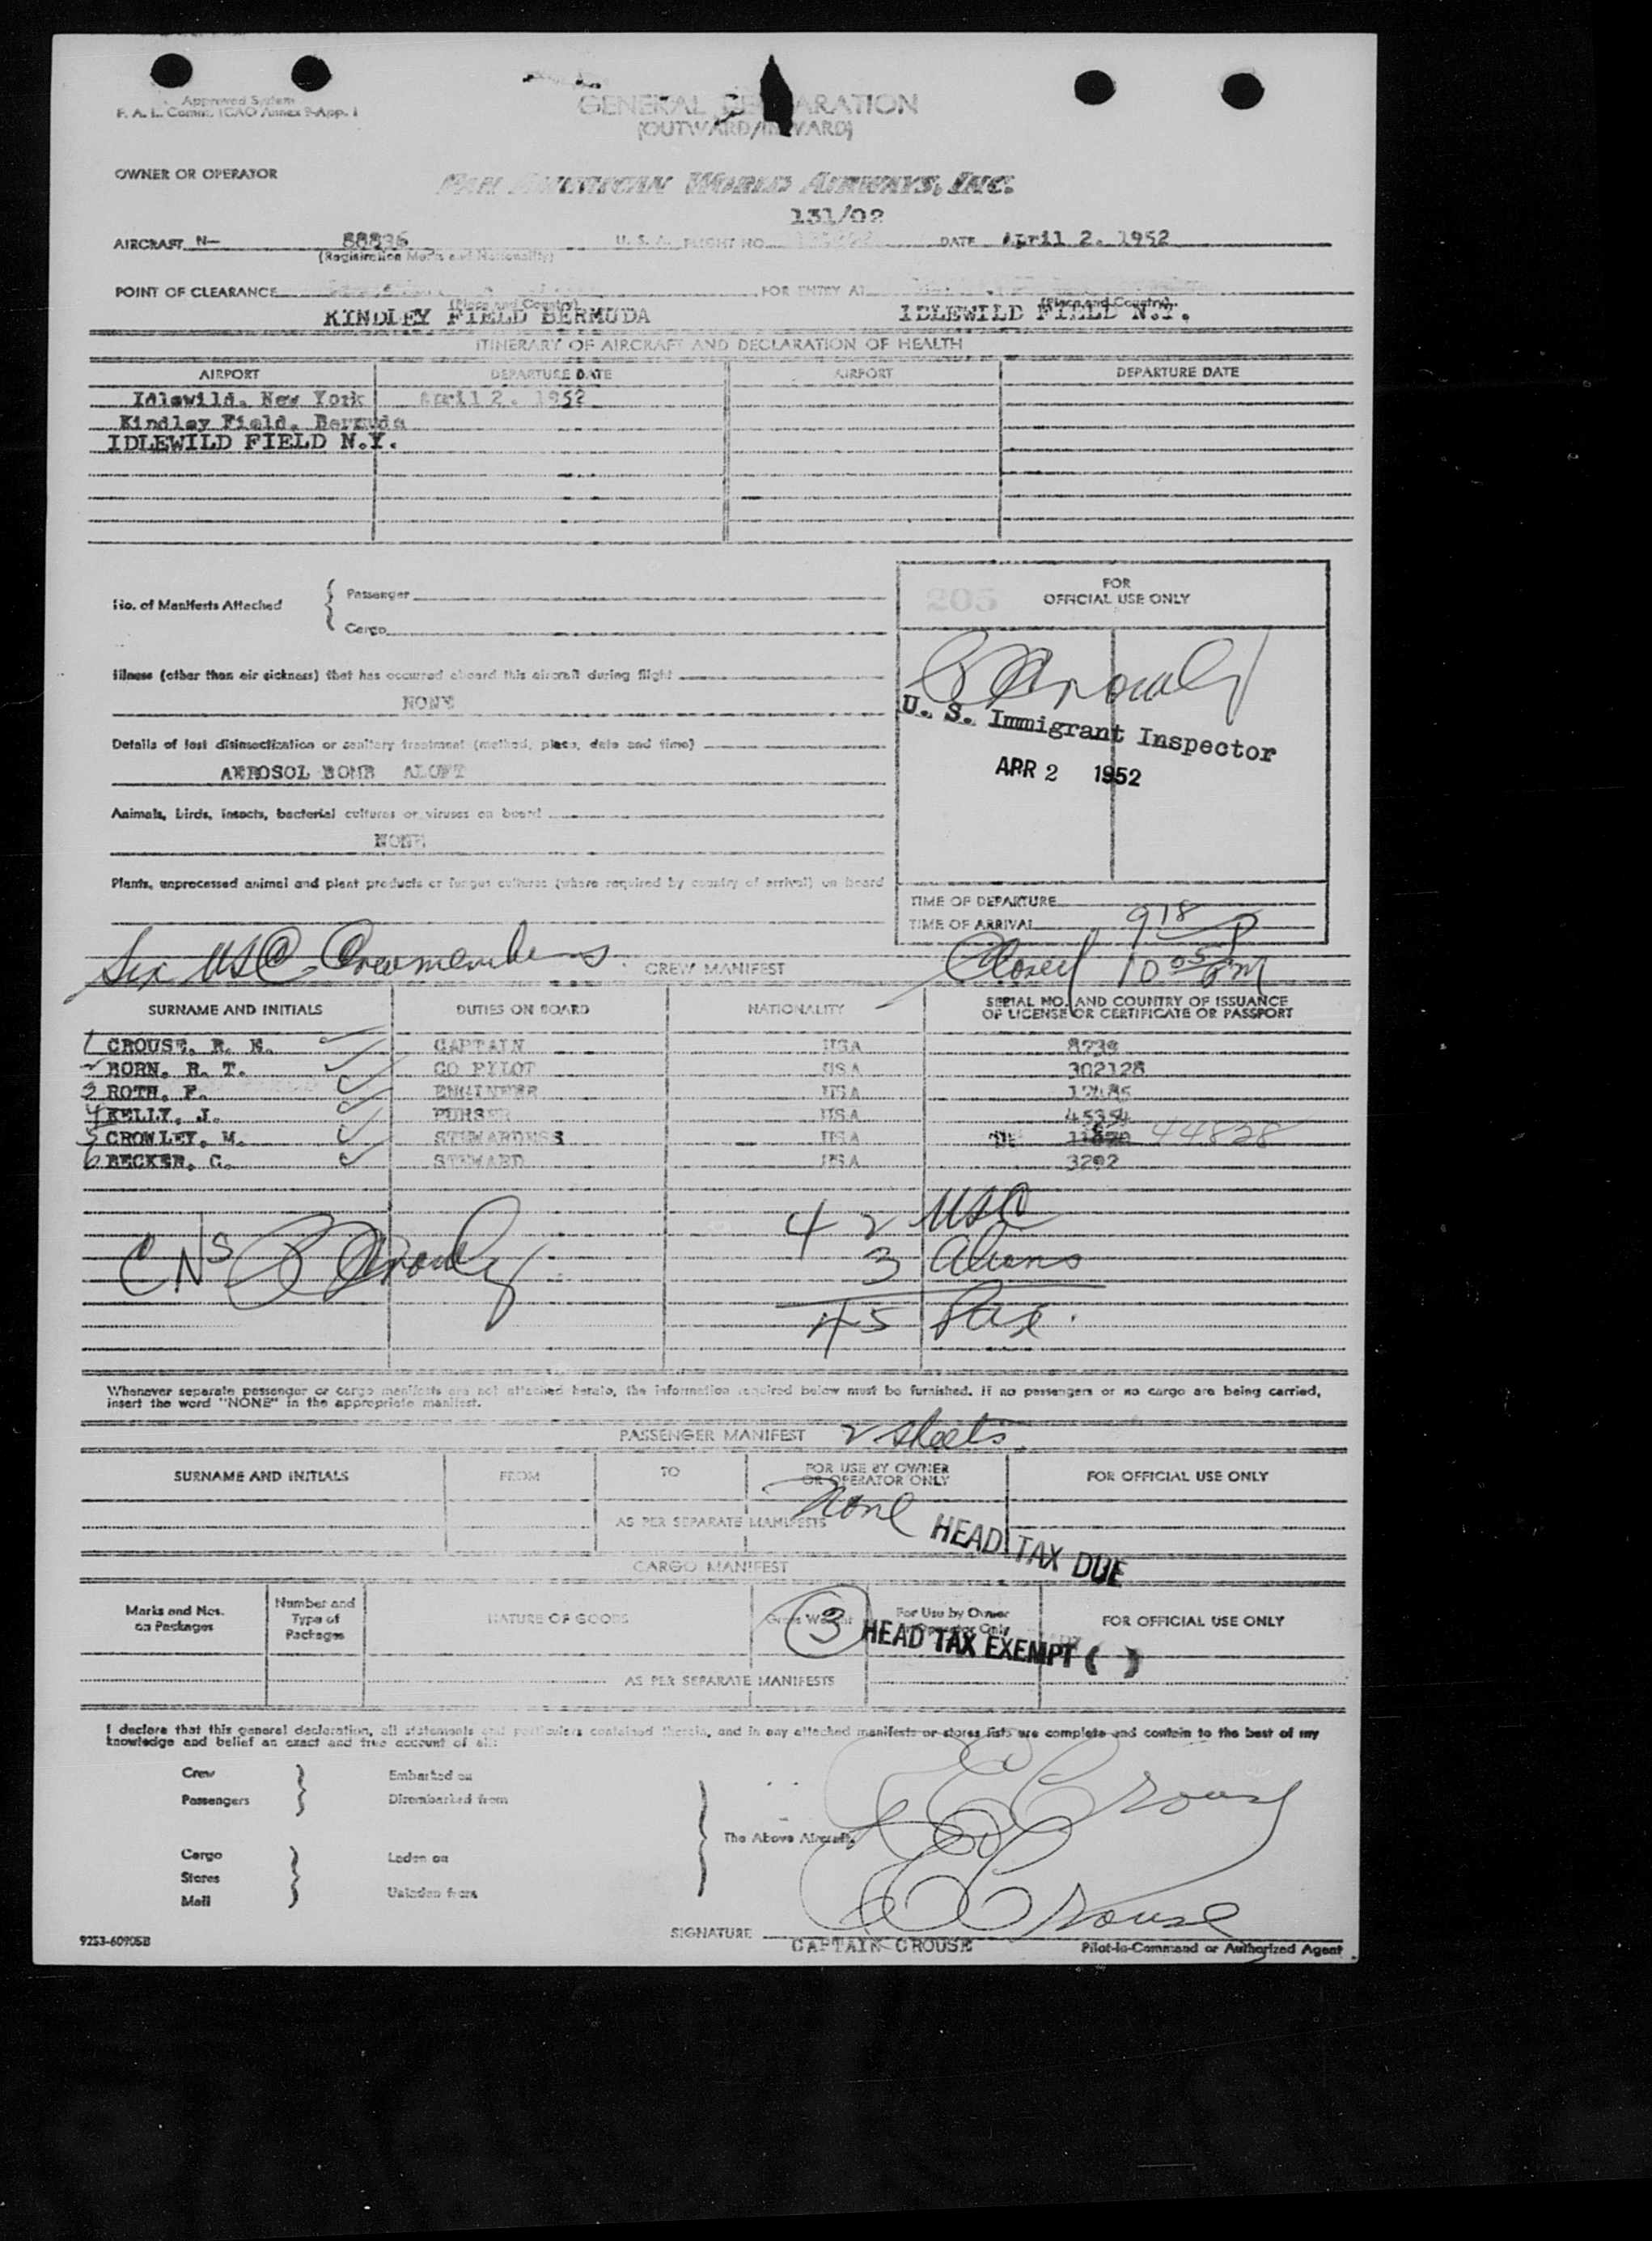 Approved System
F. A. L. Comm. ICAO Annex 9-App. 1
GENERAL DECLARATION
(OUTWARD/INWARD)
OWNER OR OPERATOR PAN AMERICAN WORLD AIRWAYS, INC.
131/02
AIRCRAFT N— 88836 U. S. A. FLIGHT NO. DATE April 2. 1952
(Registration Marks and Nationality)
POINT OF CLEARANCE FOR ENTRY AT
(Place and Country) (Place and Country)
KINDLEY FIELD BERMUDA IDLEWILD FIELD N.Y.
ITINERARY OF AIRCRAFT AND DECLARATION OF HEALTH
AIRPORT DEPARTURE DATE AIRPORT DEPARTURE DATE
Idlewild. New York April 2. 1952
Kindley Field. Bermuda
IDLEWILD FIELD N.Y.
No. of Manifests Attached
Passenger
Cargo
205
FOR
OFFICIAL USE ONLY
Illness (other than air sickness) that has occurred aboard this aircraft during flight
NONE
U. S. Immigrant Inspector
APR 2 1952
Details of last disinsectization or sanitary treatment (method, place, date and time)
AEROSOL BOMB ALOFT
Animals, birds, insects, bacterial cultures or viruses on board
NONE
Plants, unprocessed animal and plant products or fungus cultures (where required by country of arrival) on board
TIME OF DEPARTURE
TIME OF ARRIVAL 918 P
Six USC Crewmembers CREW MANIFEST Closed 10 05 PM
SURNAME AND INITIALS DUTIES ON BOARD NATIONALITY SERIAL NO. AND COUNTRY OF ISSUANCE
OF LICENSE OR CERTIFICATE OR PASSPORT
1 CROUSE. E. E. CAPTAIN USA 8739
2 BORN. R. T. CO PILOT USA 302128
3 ROTH. F. ENGINEER USA 12486
4 KELLY. J. PURSER USA 45354
5 CROWLEY. M. STEWARDESS USA 44828
6 BECKER. G. STEWARD USA 3292
42 USC
3 Aliens
45 Pax.
CNS
Whenever separate passenger or cargo manifests are not attached hereto, the information required below must be furnished. If no passengers or no cargo are being carried,
insert the word "NONE" in the appropriate manifest.
PASSENGER MANIFEST 2 sheets
SURNAME AND INITIALS FROM TO FOR USE BY OWNER
OR OPERATOR ONLY FOR OFFICIAL USE ONLY
AS PER SEPARATE MANIFESTS
None HEAD TAX DUE
CARGO MANIFEST
Marks and Nos.
on Packages
Number and
Type of
Packages
NATURE OF GOODS Gross Weight
For Use by Owner
or Operator Only
FOR OFFICIAL USE ONLY
3 HEAD TAX EXEMPT ( )
AS PER SEPARATE MANIFESTS
I declare that this general declaration, all statements and particulars contained therein, and in any attached manifests or stores lists are complete and contain to the best of my
knowledge and belief an exact and true account of all:
Crew
Passengers
Embarked on
Disembarked from
The Above Aircraft.
E E Crouse
Cargo
Stores
Mail
Laden on
Unladen from
E E Crouse
SIGNATURE
CAPTAIN CROUSE
Pilot-in-Command or Authorized Agent
9253-60905B